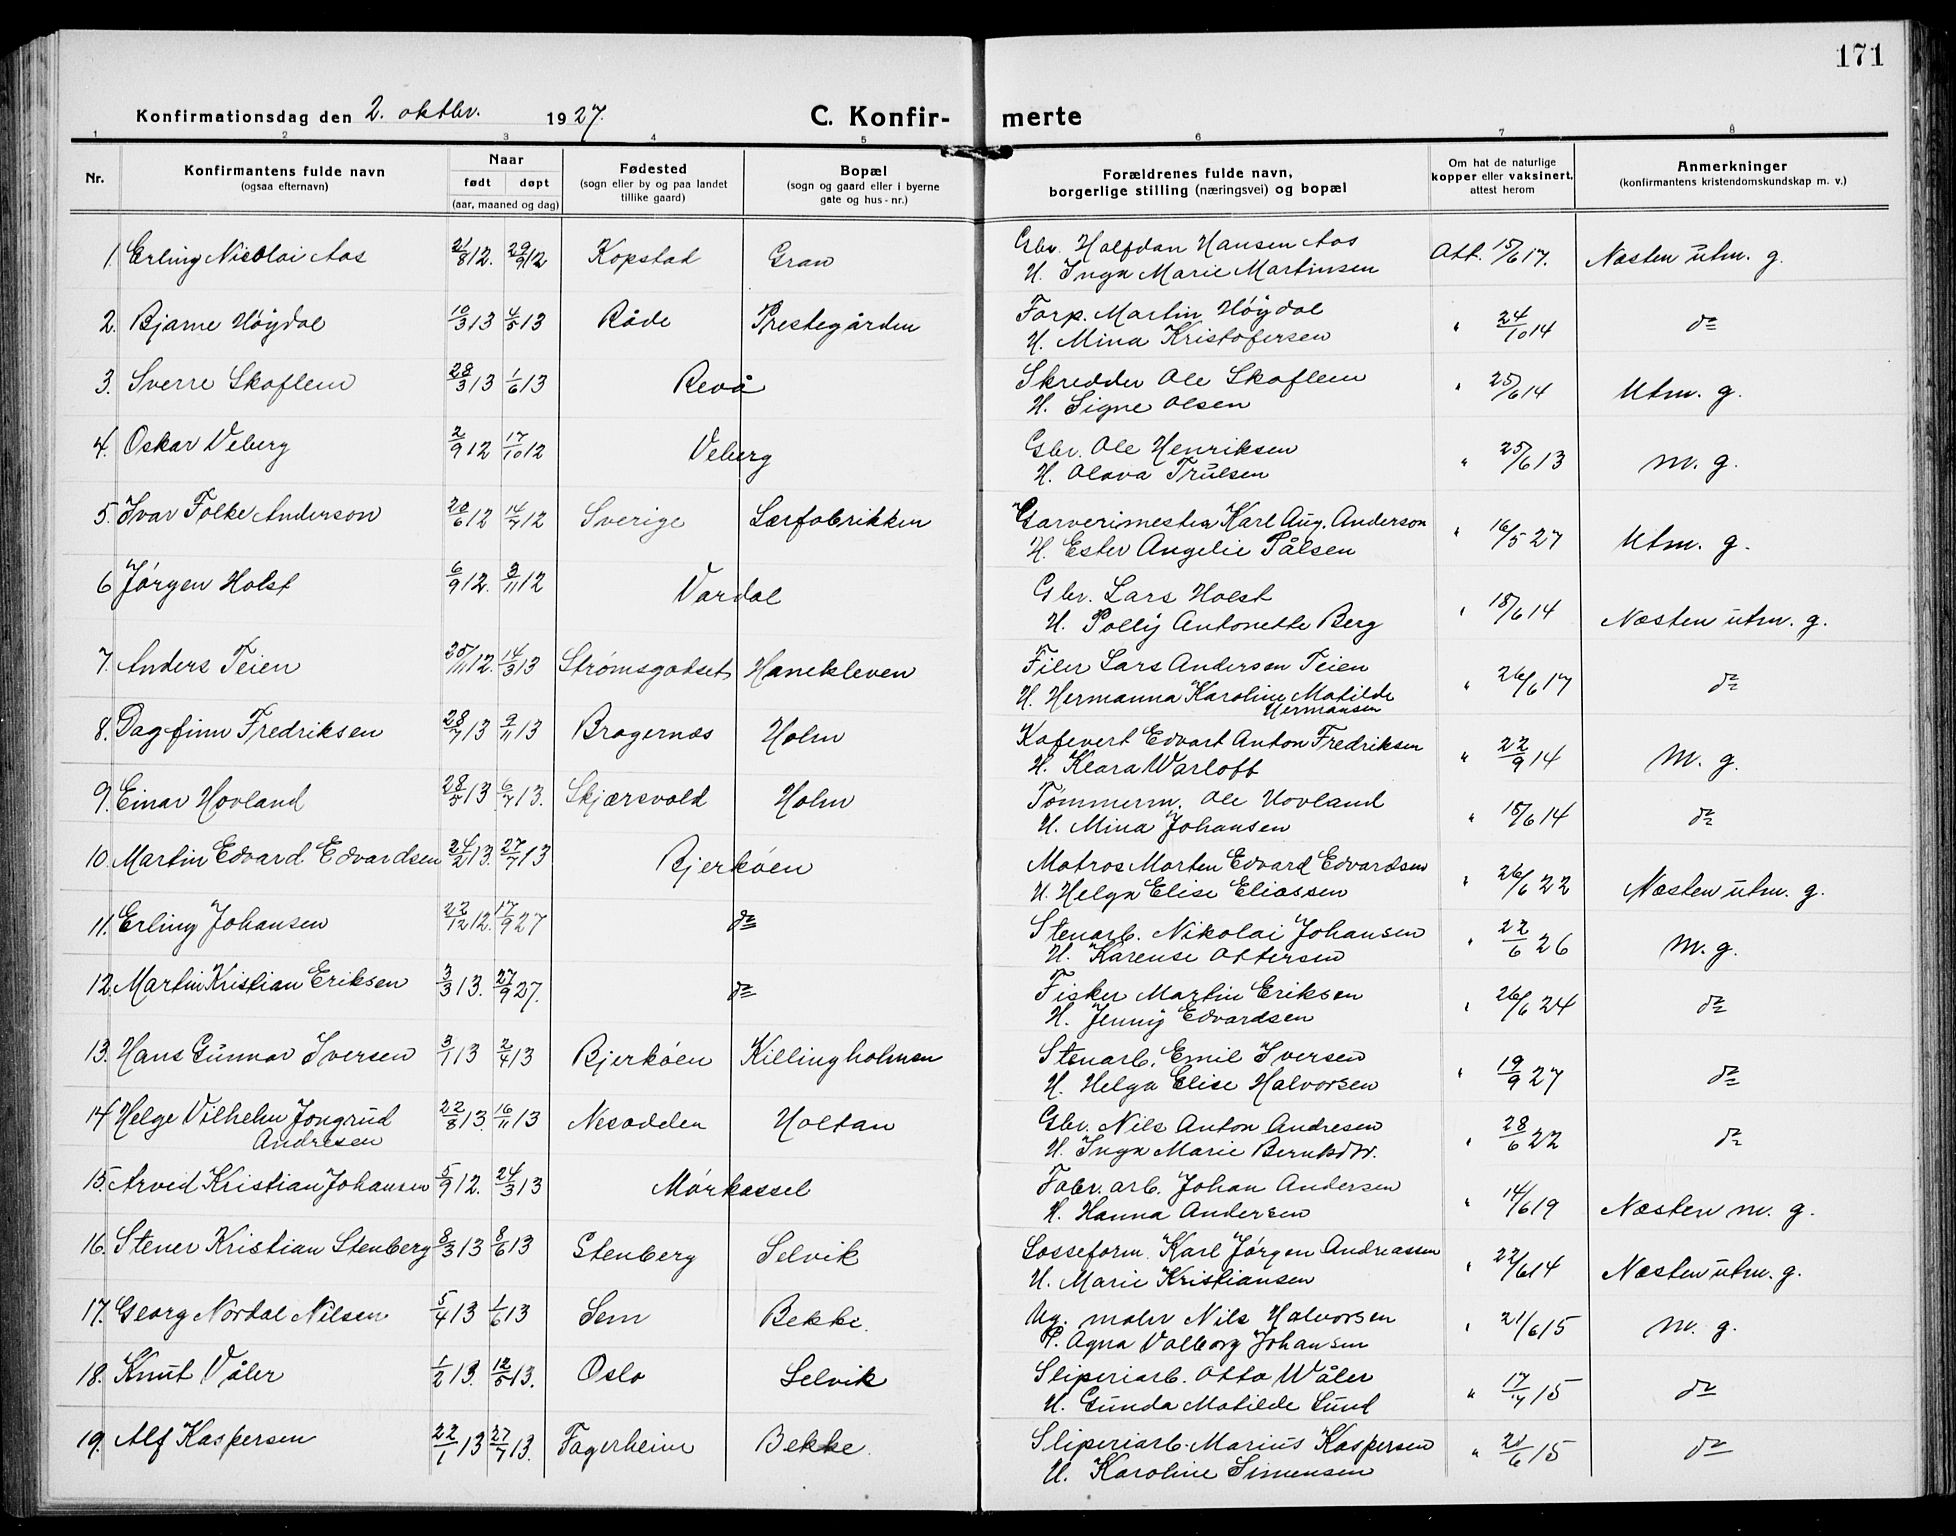 171
Konfirmationsdag den 2. oktbr. 1927.
C. Konfirmerte
1 2 3 4 5 6 7 8
Nr.
Konfirmantens fulde navn
(ogsaa efternavn)
Naar
født døpt
(aar, maaned og dag)
Fødested
(sogn eller by og paa landet
tillike gaard)
Bopæl
(sogn og gaard eller i byerne
gate og hus-nr.)
Forældrenes fulde navn,
borgerlige stilling (næringsvei) og bopæl
Om hat de naturlige
kopper eller vaksinert,
attest herom
Anmerkninger
(konfirmantens kristendomskundskap m. v.)
1. Erling Nicolai Aas 21/8 12. 29/9 12 Kopstad Gran Gbr. Halfdan Hansen Aas Att. 15/6 17. Næsten utm. g.
H. Inga Marie Martinsen
2. Bjarne Høydal 10/3 13 4/5 13 Råde Prestegården Forp. Martin Høydal " 24/10 14 do
H. Mina Kristofersen
3. Sverre Skoflem 28/3 13 1/6 13 Revå Skredder Ole Skoflem " 25/6 14 Utm. g.
H. Signe Olsen
4. Oskar Veberg 2/9 12 17/10 12 Veberg Gbr. Ole Henriksen " 25/6 13 M. g.
H. Olava Trulsen
5. Ivar Folke Anderson 20/6 12 14/7 12 Sverige Lærfabrikken Garverimester Karl Aug. Anderson " 16/5 27 Utm. g.
H. Ester Angelie Pålsen
6 Jørgen Holst 6/9 12. 3/11 12 Vardal Gbr. Lars Holst " 15/6 14 Næsten utm. g.
H. Polly Antonette Berg
7. Anders Teien 25/11 12. 14/3 13 Strømsgodset Hanekleven Filer Lars Andersen Teien " 26/6 17 do
H. Hermanna Karoline Matilde
Hermansen
8. Dagfinn Fredriksen 28/7 13 9/11 13 Bragernæs Holm Kafevert Edvart Anton Fredriksen " 22/9 14 M. g.
H. Klara Warloff
9. Einar Hovland 28/5 13 6/7 13. Skjærsvold Holm Tømmerm. Ole Hovland " 15/6 14 do
H. Mina Johansen
10. Martin Edvard Edvardsen 24/2 13. 27/7 13 Bjerkøen Matros Morten Edvard Edvardsen " 26/6 22 Næsten utm. g.
H. Helga Elise Eliassen
11. Erling Johansen 22/12 12. 17/9 27 do Stenarb. Nikolai Johansen " 22/6 26 M. g.
H. Karense Ottersen
12. Martin Kristian Eriksen 3/3 13. 27/9 27. do Fisker Martin Eriksen " 26/6 24 do
H. Jenny Edvardsen
13. Hans Gunnar Iversen 3/1 13 2/4 13 Bjerkøen Killingholmen Stenarb. Emil Iversen " 19/9 27 do
H. Helga Elise Halvorsen
14 Helge Vilhelm Jongrud 22/8 13. 16/11 13 Nesodden Holtan Gbr. Nils Anton Andresen " 28/6 22 do
Andresen H. Inga Marie Berntsdtr.
15. Arved Kristian Johansen 5/9 12. 24/3 13 Mørkassel Fabr. arb. Johan Andersen " 14/6 19 Næsten m. g.
H. Hanna Andersen
16. Stener Kristian Stenberg 8/3 13 8/6 13 Stenberg Selvik Losseform. Karl Jørgen Andreassen " 22/6 14 Næsten utm. g.
H. Marie Kristiansen
17. Georg Nordal Nilsen 5/4 13 1/6 13 Sem Bekke. Ug. maler Nils Halvorsen " 21/6 15 M. g.
P. Agna Valborg Johansen
18. Knut Våler 1/2 13. 12/5 13. Oslo Selvik Sliperiarb. Otto Wåler " 17/7 15 do
H. Gunda Matilde Lund
19. Alf Kaspersen 22/1 13 27/7 13. Fagerheim Bekke. Sliperiarb. Marius Kaspersen " 21/6 15 do
H. Karoline Simensen